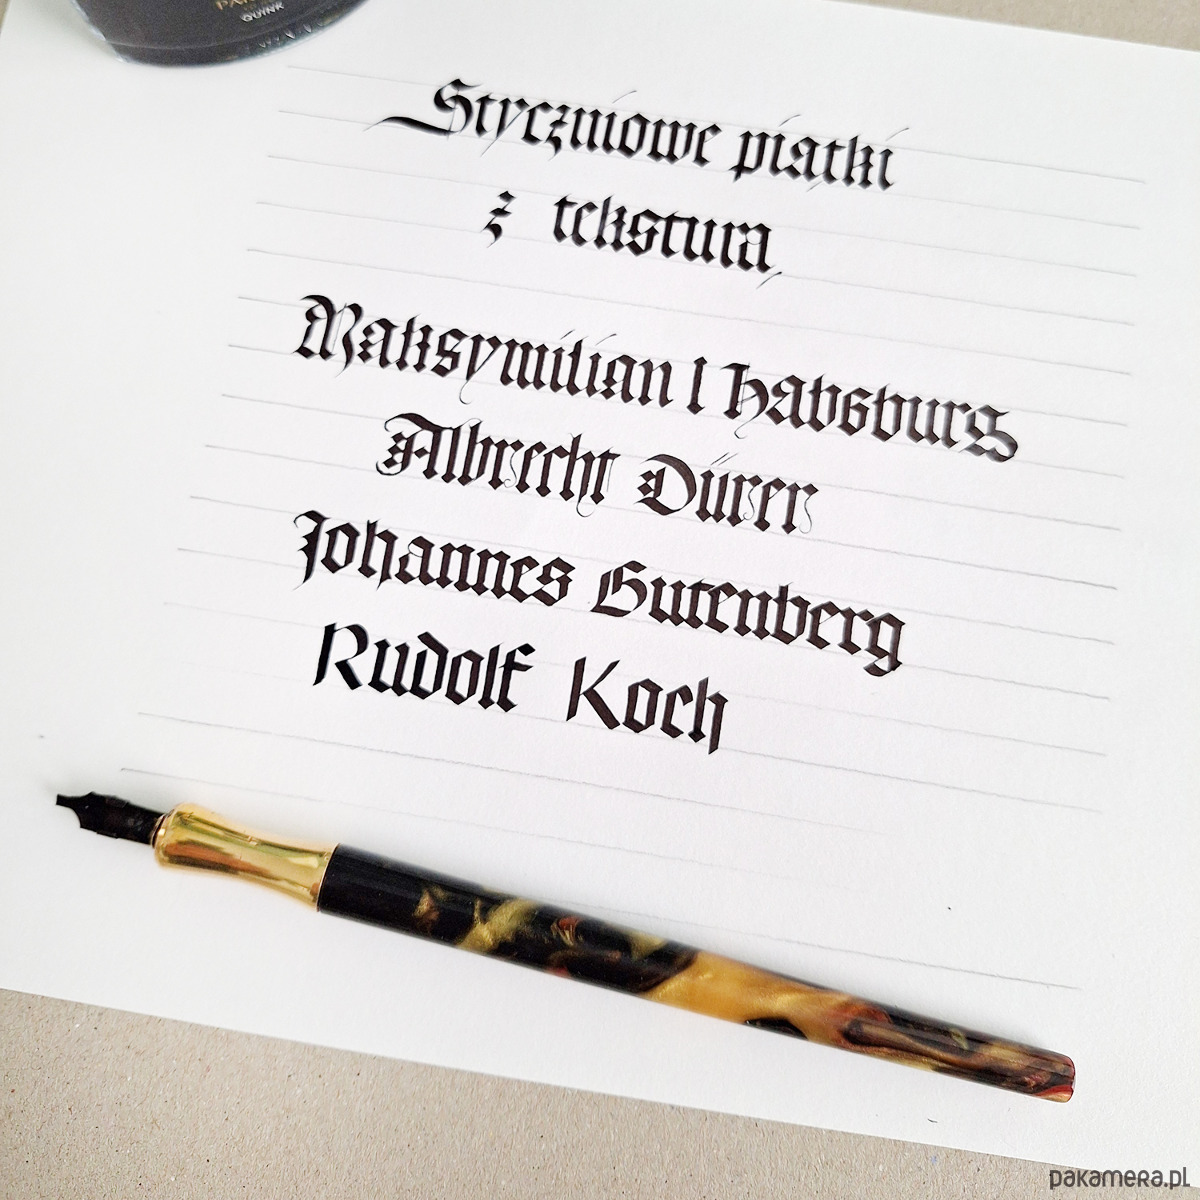 QUINK
Styczniowe piątki
z teksturą
Maksymilian I Habsburg
Albrecht Dürer
Johannes Gutenberg
Rudolf Koch
pakamera.pl